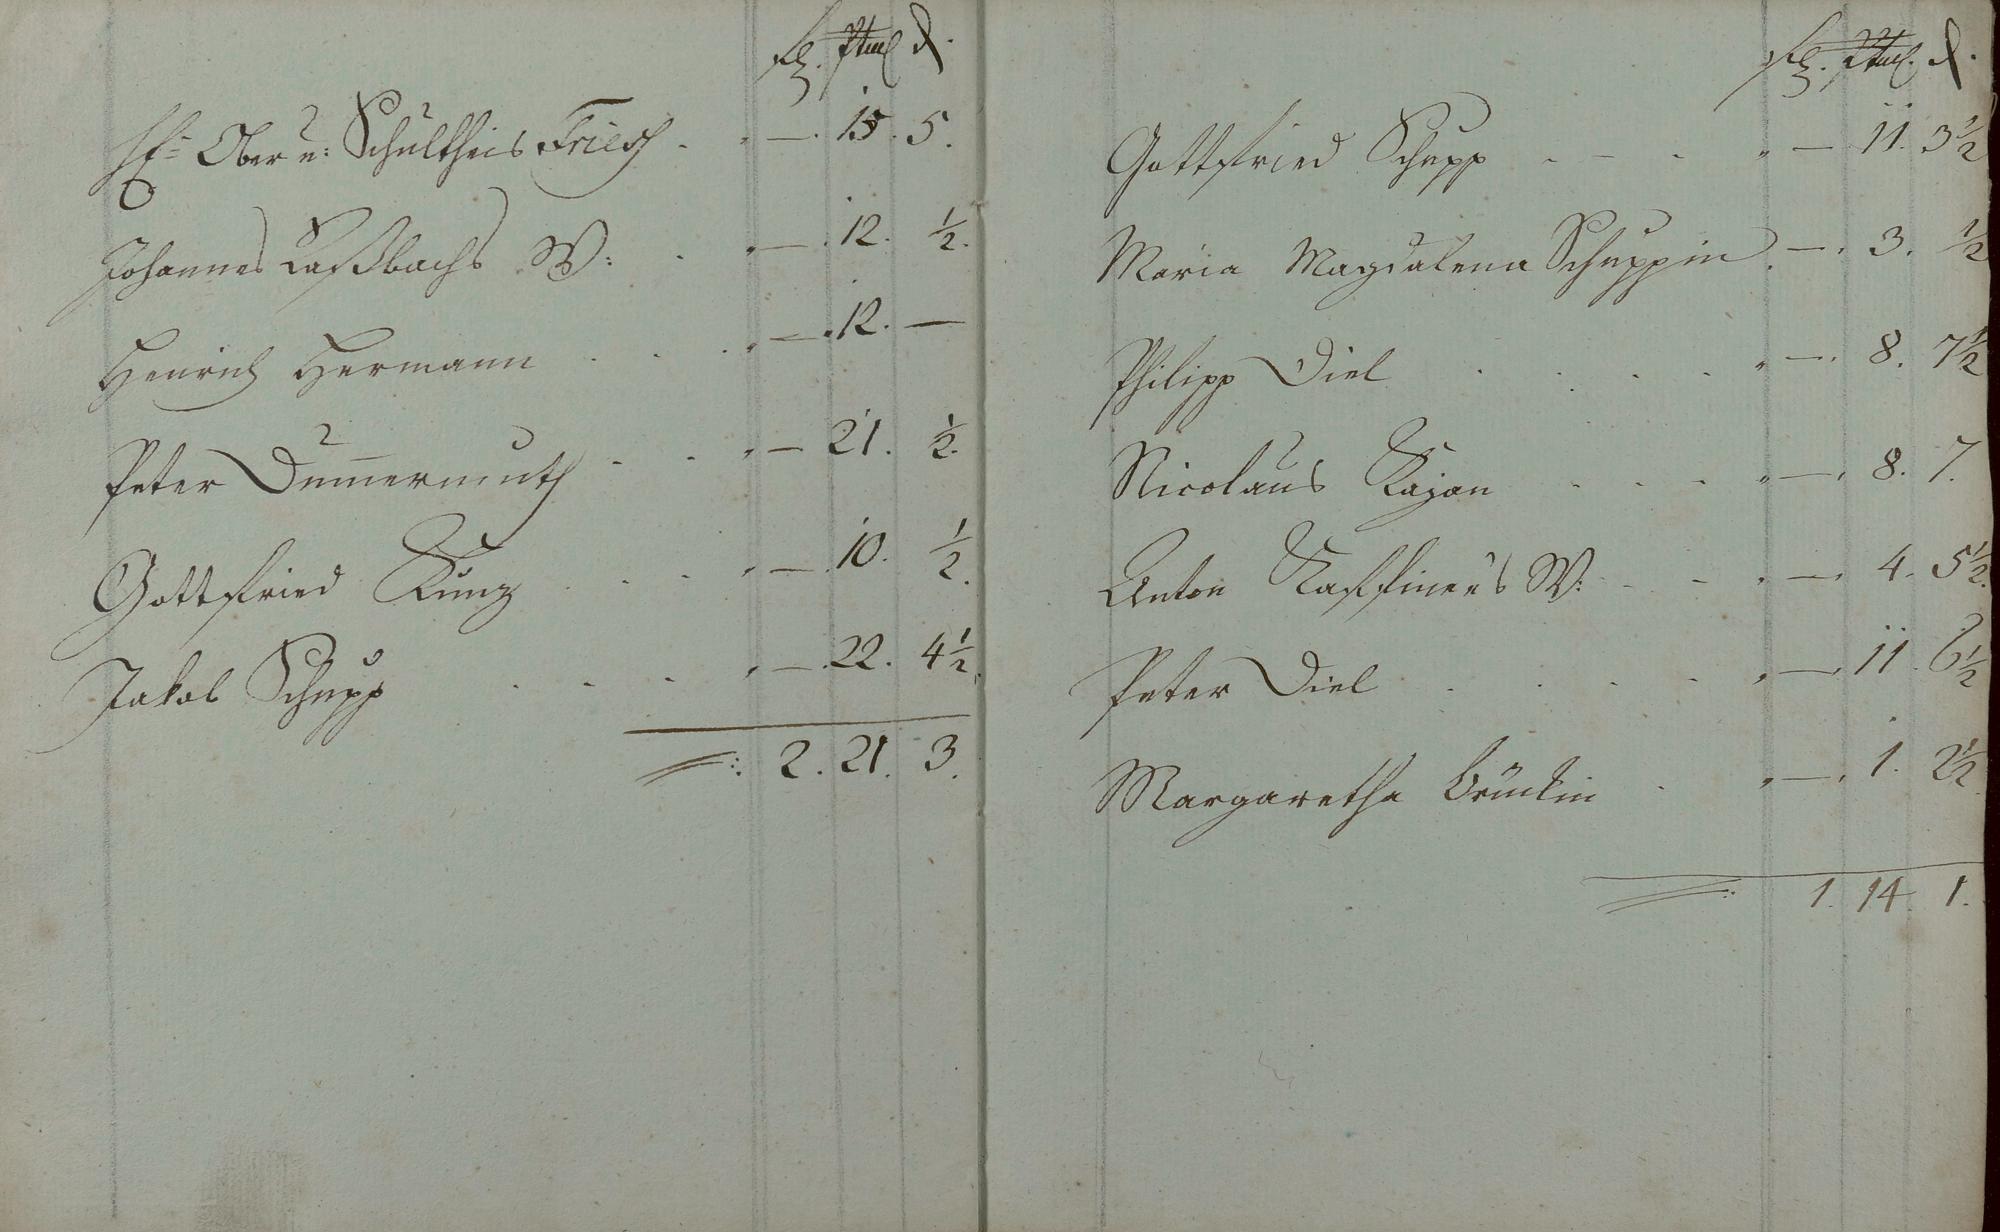 Hr. Ober u: Schultheis Friesch . . — . 15 . 5 .
Johannes Laßbachs W: . . — . 12 . ½ .
Henrich Hermann . . . — . 12 . —
Peter Dum̄ermuth . . . — 21 . ½ .
Gottfried Kunz . . . — . 10 . ½ .
Jakob Schupp . . . . — . 22 . 4½ .
2 . 21 . 3 .
Gottfried Schupp . — . . — 11 . 3½
Maria Magdalena Schuppin . — . 3 . ½
Philipp Diel . . . . — . 8 . 7½
Nicolaus . . . — . 8 . 7 .
Anton W: . — . — . 4 . 5½ .
Peter Diel . . . . — 11 . 6½
Margaretha . . — . 1 . 2½
1 . 14 . 1 .